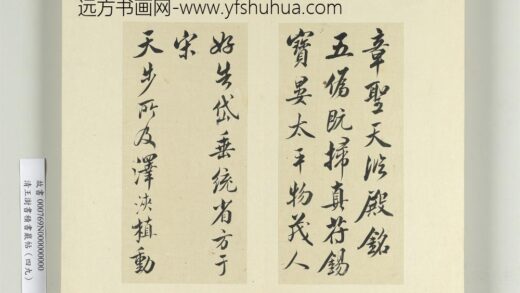 远方书画网-www.yfshuhua.com
章聖天臨殿銘
五僞既掃真符錫
寶晏太平物茂人
好生岱垂統省方于
宋
天步所及澤浹植動
故書000769N000000000
清王澍書積書巖帖(四九)